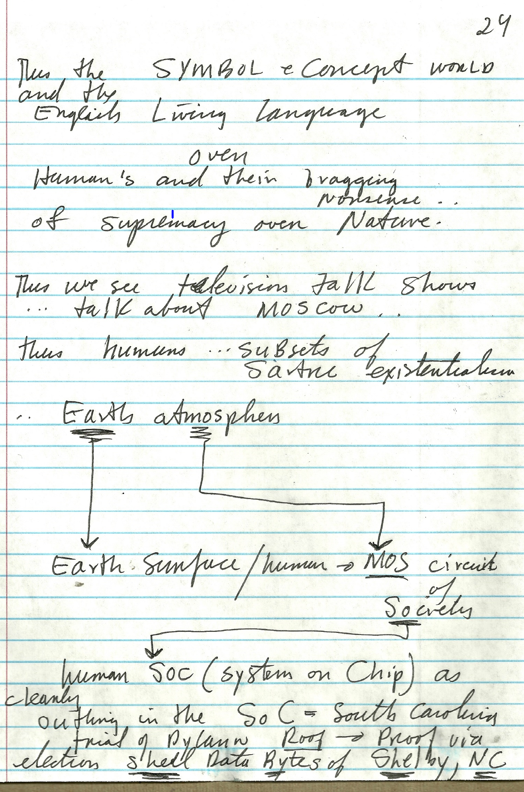 24
Thus the SYMBOL e Concept world
and the
English Living Language
over
Human's and their bragging
nonsense ..
of supremacy over Nature.
Thus we see television talk shows
... talk about MOSCOW ...
thus humans ... subsets of
Sartre existentialism
.. Earth atmosphere
Earth Surface / human → MOS circuit
of
Society
human SOC (system on Chip) as
cleanly
outling in the SoC = South Carolina
trial of Dylann Roof → Proof via
election shell Data Bytes of Shelby, NC